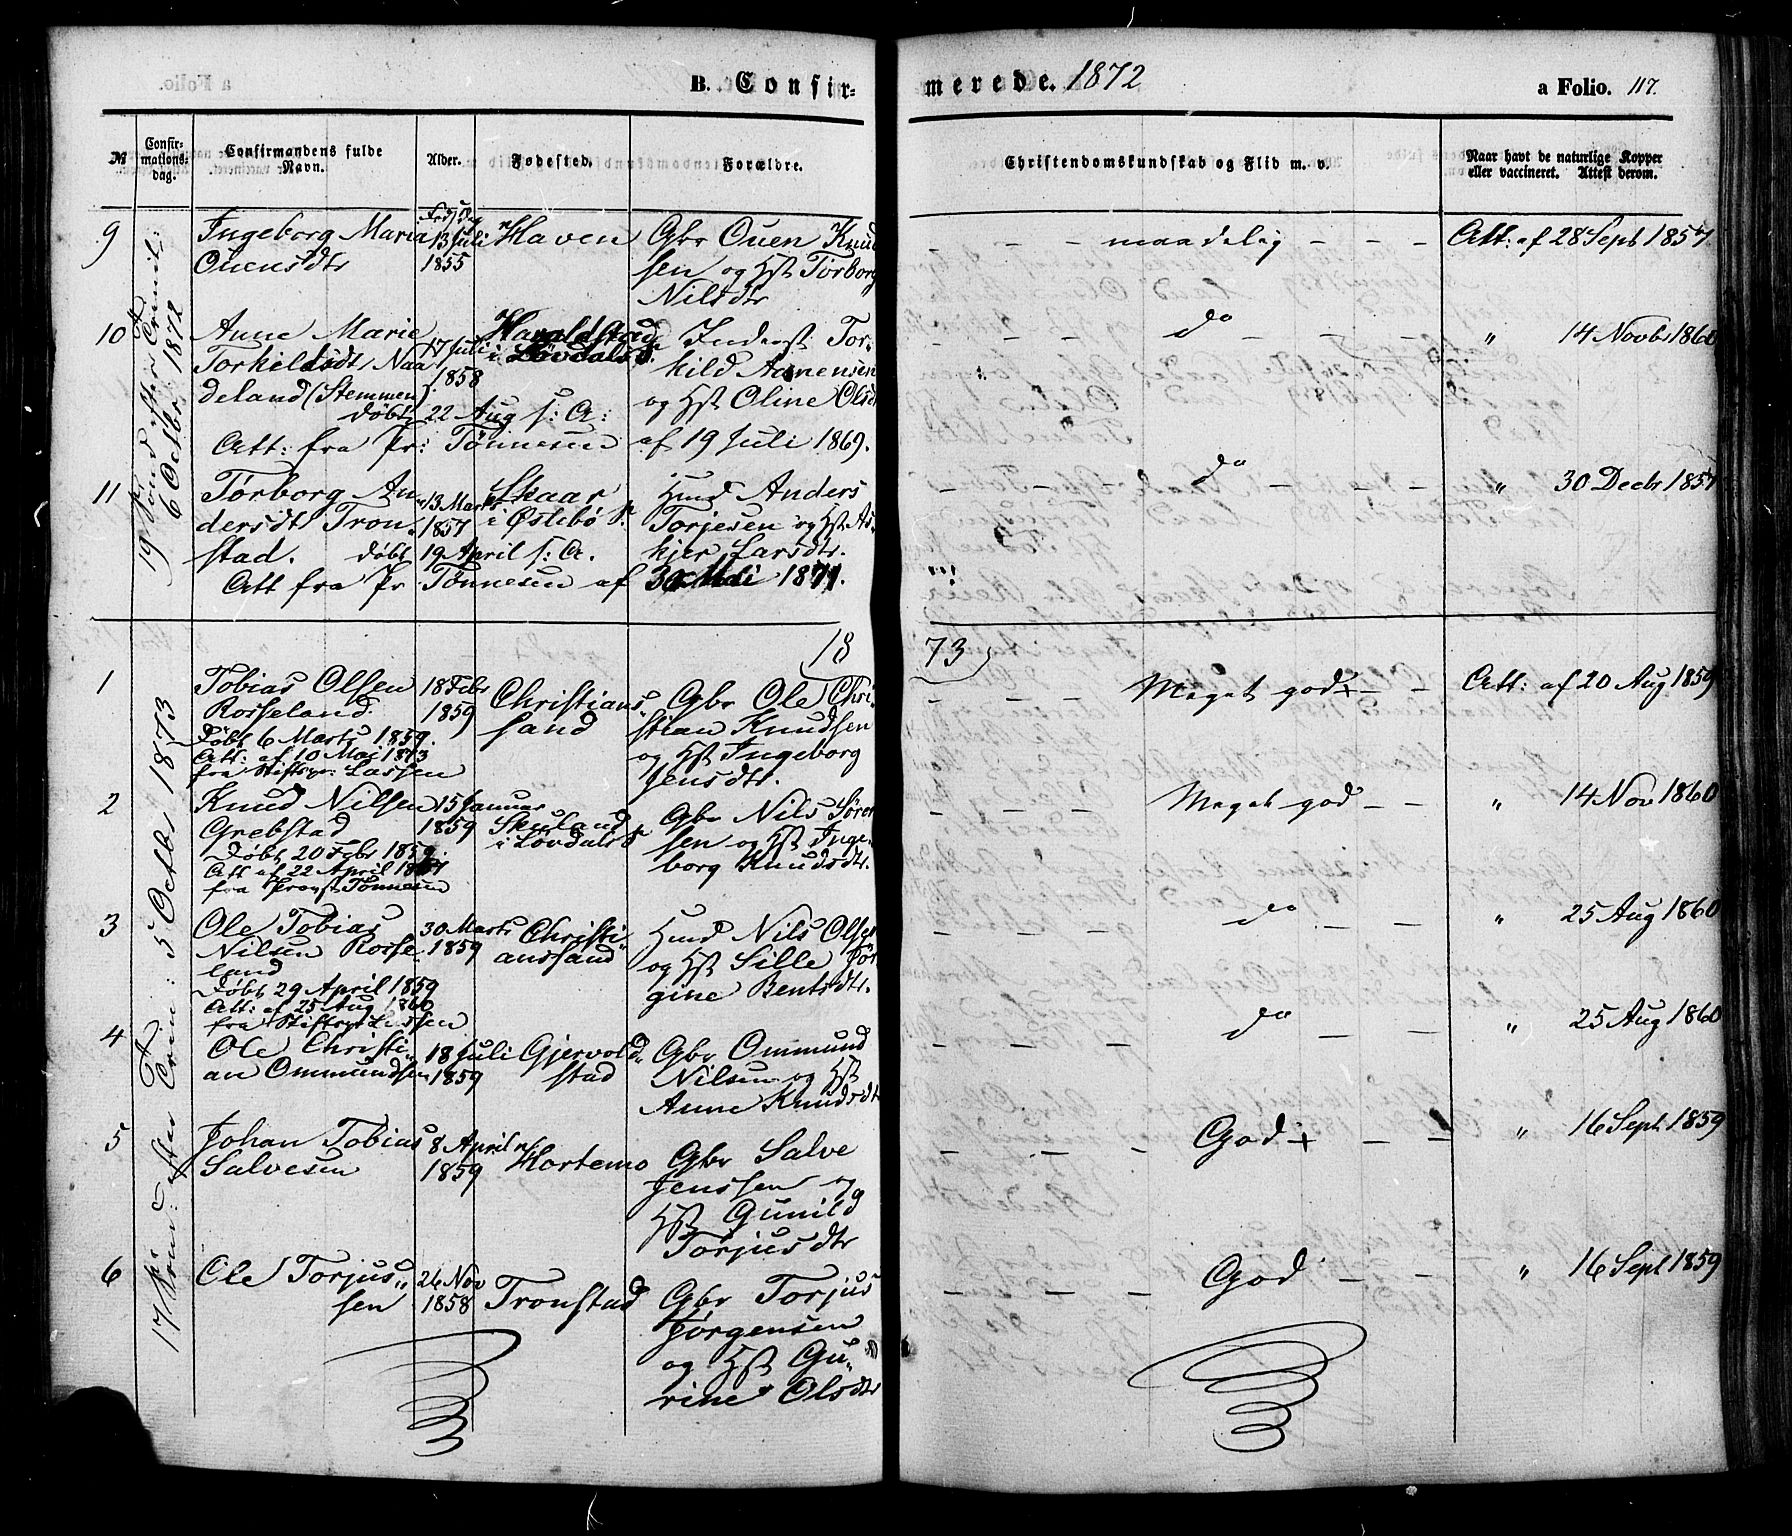 B. Confir-
merede. 1872
a Folio. 117.
№
Confir-
mations-
dag.
Confirmandens fulde
Navn.
Alder.
Fødested.
Forældre.
Christendomskundskab og Flid m. v.
Naar havt de naturlige Kopper
eller vaccineret. Attest derom.
19 Sönd: efter Trinit:
6 Octbr: 1872
9
Ingeborg Maria
Ouensdtr
13 Juli
1855
Haven
Gbr Ouen Knud
sen og Hst Torborg
Nilsdtr
- - - maadelig - - -
Att: af 28 Sept 1857
10
Anne Marie
Torkildsdtr Naa
deland (Stemmen)
døbt 22 Aug s: A:
17 Juli
1858
Haraldstad
i Løvdals S.
Inderst Tor-
kild Aanensen
og Hst Oline Olsdt
do
" 14 Novbr 1860
Att: fra Pr: Tønnesen af 19 Juli 1869.
11
Torborg An-
dersdt Tron-
stad. døbt 19 April s: A.
13 Marts
1857
Skaar
i Øslebø S.
Hmd Anders
Torjesen og Hst As-
kjer Larsdtr.
do
" 30 Decbr 1857
Att fra Pr Tønnesen af 30 Mai 1871.
1873
17 Sönd: efter Trin: 5 Octbr 1873
1
Tobias Olsen
Rosseland.
Døbt 6 Marts 1859.
Att: af 10 Mai 1873
fra Stiftspr: Lassen
18 Febr
1859
Christians-
sand
Gbr Ole Chri-
stian Knudsen
og Hst Ingeborg
Jensdtr.
- - - Meget god + - -
Att: af 20 Aug 1859
2
Knud Nilsen
Grebstad
Døbt 20 Febr 1859.
Att af 22 April
fra Provst Tønnesen
15 Januar
1859
Skuland
i Løvdals S.
Gbr Nils Søren
sen og Hst Inge-
borg Knudsdtr.
- - - Meget god - -
" 14 Nov 1860
3
Ole Tobias
Nilsen Rosse-
land
Døbt 29 April 1859
Att: af 25 Aug 1860
fra Stiftspr Lassen
30 Marts
1859
Christi-
anssand
Hmd Nils Olsen
og Hst Sille Jør
gine Bentsdtr.
do
" 25 Aug 1860
4
Ole Christi-
an Ommundsen
18 Juli
1859
Gjervold-
stad
Gbr Ommund
Nilsen og Hst
Anne Knudsdt
do
" 25 Aug 1860
5
Johan Tobias
Salvesen
8 April
1859
Hortemo
Gbr Salve
Jenssen og
Hst Gunild
Torjusdtr
God +
" 16 Sept 1859
6
Ole Torjus-
sen
26 Nov
1858
Tronstad
Gbr Torjus
Jørgensen
og Hst Gu-
rine Olsdtr
God
" 16 Sept 1859